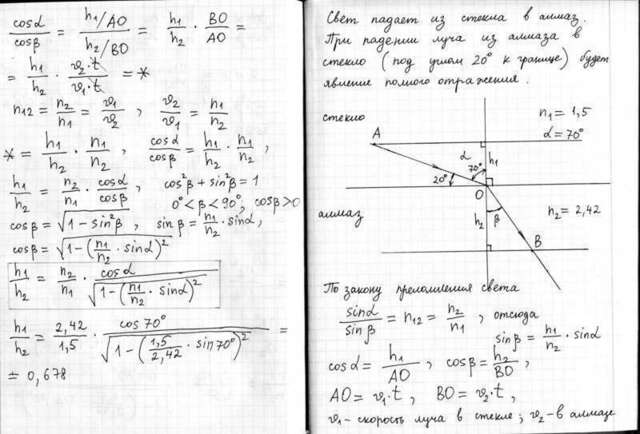 cosα/cosβ = (h₁/AO)/(h₂/BO) = h₁/h₂ · BO/AO =
= h₁/h₂ · (υ₂·t)/(υ₁·t) = *
n₁₂ = n₂/n₁ = υ₁/υ₂ , υ₂/υ₁ = n₁/n₂
* = h₁/h₂ · n₁/n₂ , cosα/cosβ = h₁/h₂ · n₁/n₂ ,
h₁/h₂ = n₂/n₁ · cosα/cosβ , cos²β + sin²β = 1
0° < β < 90°, cosβ > 0
cosβ = √(1 − sin²β) , sinβ = n₁/n₂ · sinα,
cosβ = √(1 − (n₁/n₂ · sinα)²)
h₁/h₂ = n₂/n₁ · cosα/√(1 − (n₁/n₂ · sinα)²)
h₁/h₂ = 2,42/1,5 · cos70°/√(1 − (1,5/2,42 · sin70°)²) =
= 0,678
Свет падает из стекла в алмаз.
При падении луча из алмаза в
стекло (под углом 20° к границе) будет
явление полного отражения.
стекло
n₁ = 1,5
A
α = 70°
α
h₁
20°
70°
O
алмаз
h₂
β
h₂ = 2,42
B
По закону преломления света
sinα/sinβ = n₁₂ = n₂/n₁ , отсюда
sinβ = n₁/n₂ · sinα
cosα = h₁/AO , cosβ = h₂/BO ,
AO = υ₁·t , BO = υ₂·t ,
υ₁ - скорость луча в стекле; υ₂ - в алмазе